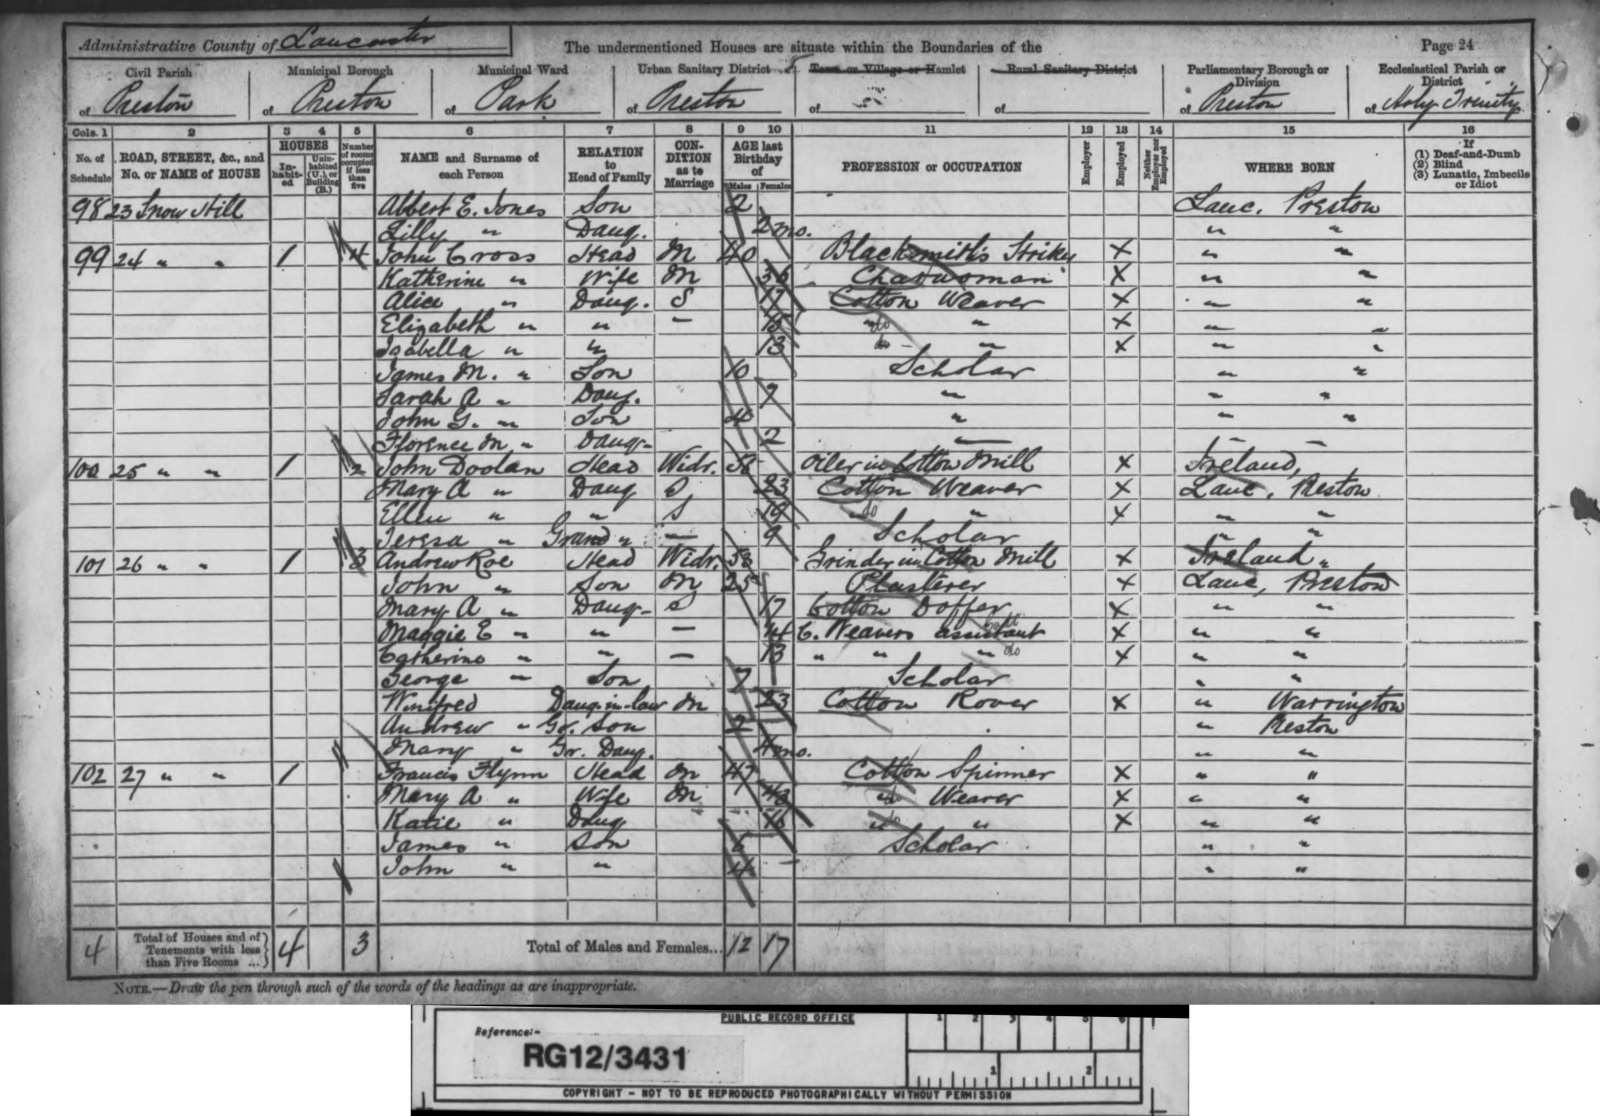 Administrative County of Lancaster
The undermentioned Houses are situate within the Boundaries of the
Page 24
Civil Parish of Preston
Municipal Borough of Preston
Municipal Ward of Park
Urban Sanitary District of Preston
Town or Village or Hamlet of
Rural Sanitary District of
Parliamentary Borough or Division of Preston
Ecclesiastical Parish or District of Holy Trinity
Cols. 1 2 3 4 5 6 7 8 9 10 11 12 13 14 15 16
No. of Schedule
ROAD, STREET, &c., and No. or NAME of HOUSE
HOUSES
Inhabited
Uninhabited (U.), or Building (B.)
Number of rooms occupied if less than five
NAME and Surname of each Person
RELATION to Head of Family
CONDITION as to Marriage
AGE last Birthday of
Males Females
PROFESSION or OCCUPATION
Employer
Employed
Neither Employer nor Employed
WHERE BORN
If
(1) Deaf-and-Dumb
(2) Blind
(3) Lunatic, Imbecile or Idiot
98 23 Snow Hill Albert E. Jones Son 2 Lanc. Preston
Lilly " Daug. 2 mo. " "
99 24 " " 1 4 John Cross Head M 40 Blacksmith's Striker X " "
Katherine " Wife M 36 Charwoman X " "
Alice " Daug. S 17 Cotton Weaver X " "
Elizabeth " " – 15 " do " X " "
Isabella " " 13 do " X " "
James M. " Son 10 Scholar " "
Sarah A " Daug. 7 " " "
John G. " Son 4 " " "
Florence M " Daug. 2 – – –
100 25 " " 1 2 John Doolan Head Widr. Oiler in Cotton Mill X Ireland,
Mary A " Daug S 23 Cotton Weaver X Lanc, Preston
Ellen " " S 19 do " X " "
Teresa " Grand " – 9 Scholar " "
101 26 " " 1 3 Andrew Roe Head Widr. 53 Grinder in Cotton Mill X Ireland "
John " Son M 25 Plasterer X Lanc, Preston
Mary A " Daug S 17 Cotton Doffer X " "
Maggie E " " – 14 C. Weavers assistant X " "
Catherine " " – 13 " " " do X " "
George " Son 7 Scholar " "
Winifred Daug-in-law M 23 Cotton Rover X " Warrington
Andrew " Gr. Son 2 " Preston
Mary " Gr. Daug. 4 mo. " "
102 27 " " 1 Francis Flynn Head M 47 Cotton Spinner X " "
Mary A " Wife M 48 " do Weaver X " "
Katie " Daug 16 " do " X " "
James " Son 6 Scholar " "
John " " 4 – " "
4 Total of Houses and of Tenements with less than Five Rooms ... 4 3 Total of Males and Females... 12 17
NOTE.—Draw the pen through such of the words of the headings as are inappropriate.
PUBLIC RECORD OFFICE
1 2 3 4 5 6
Reference:-
RG12/3431
1 2
COPYRIGHT - NOT TO BE REPRODUCED PHOTOGRAPHICALLY WITHOUT PERMISSION